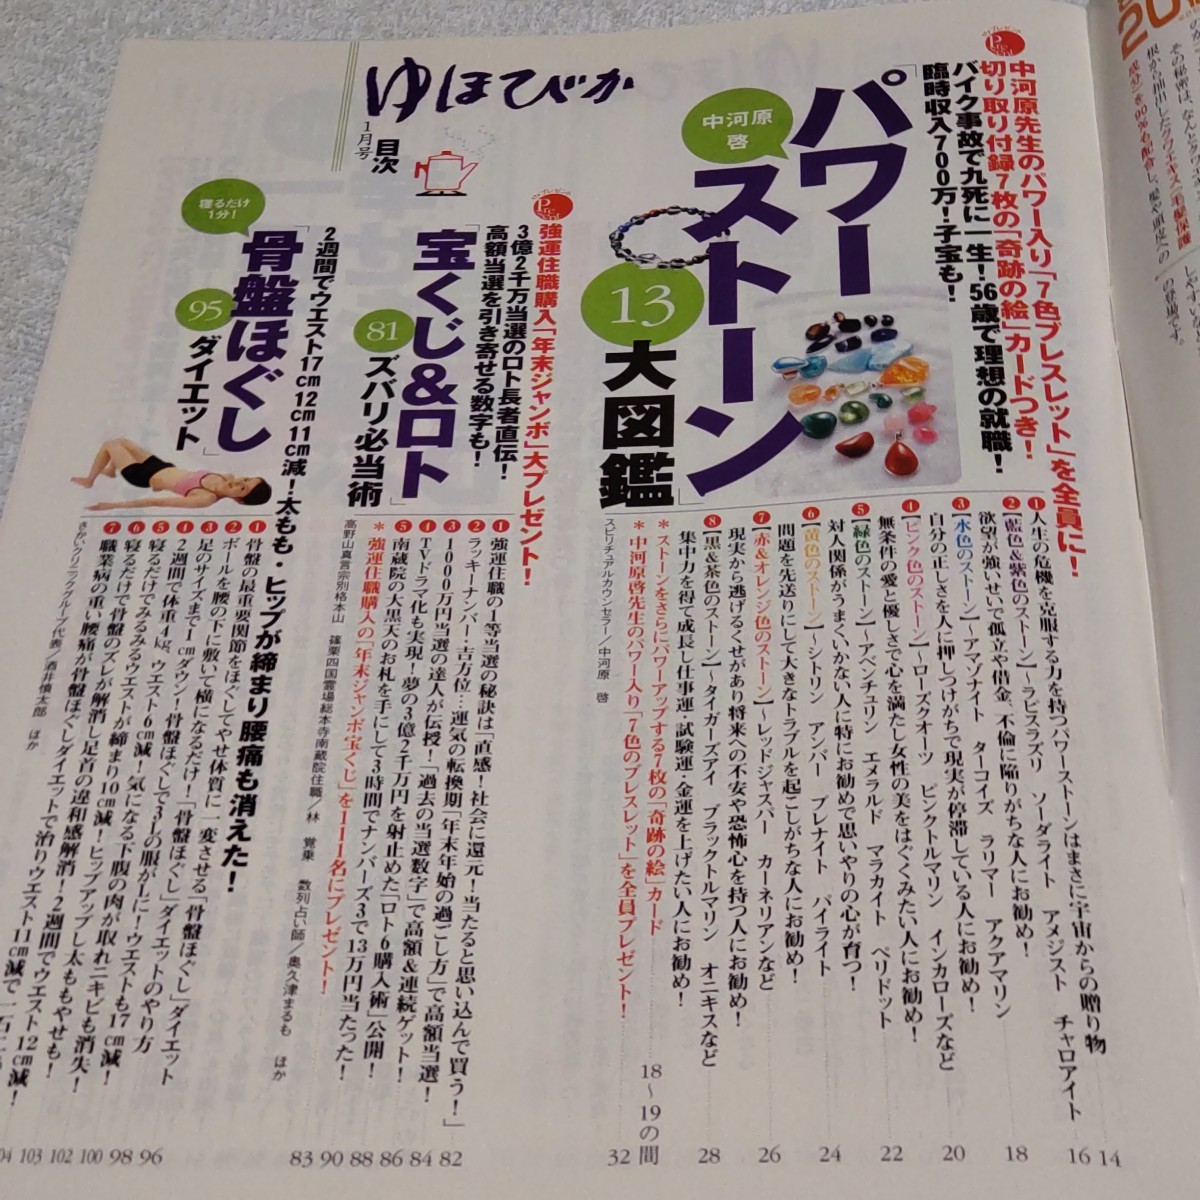 ゆほびか
1月号
目次
中河原先生のパワー入り「7色ブレスレット」を全員に！
切り取り付録7枚の「奇跡の絵」カードつき！
バイク事故で九死に一生！56歳で理想の就職！
臨時収入700万！子宝も！
中河原
啓
「パワー
ストーン」
13
大図鑑
❶人生の危機を克服する力を持つパワーストーンはまさに宇宙からの贈り物
14
❷【藍色＆紫色のストーン】〜ラピスラズリ　ソーダライト　アメジスト　チャロアイト
欲望が強いせいで孤立や借金、不倫に陥りがちな人にお勧め！
16
❸【水色のストーン】〜アマゾナイト　ターコイズ　ラリマー　アクアマリン
自分の正しさを人に押しつけがちで現実が停滞している人にお勧め！
18
❹【ピンク色のストーン】〜ローズクオーツ　ピンクトルマリン　インカローズなど
無条件の愛と優しさで心を満たし女性の美をはぐくみたい人にお勧め！
20
❺【緑色のストーン】〜アベンチュリン　エメラルド　マラカイト　ペリドット
対人関係がうまくいかない人に特にお勧めで思いやりの心が育つ！
22
❻【黄色のストーン】〜シトリン　アンバー　プレナイト　パイライト
問題を先送りにして大きなトラブルを起こしがちな人にお勧め！
24
❼【赤＆オレンジ色のストーン】〜レッドジャスパー　カーネリアンなど
現実から逃げるくせがあり将来への不安や恐怖心を持つ人にお勧め！
26
❽【黒＆茶色のストーン】〜タイガーズアイ　ブラックトルマリン　オニキスなど
集中力を得て成長し仕事運・試験運・金運を上げたい人にお勧め！
28
＊ストーンをさらにパワーアップする7枚の「奇跡の絵」カード
18〜19の間
＊中河原啓先生のパワー入り「7色のブレスレット」を全員プレゼント！
32
スピリチュアルカウンセラー／中河原　啓
強運住職購入「年末ジャンボ」大プレゼント！
3億2千万当選のロト長者直伝！
高額当選を引き寄せる数字も！
「宝くじ＆ロト」
81
ズバリ必当術
❶強運住職の1等当選の秘訣は「直感！社会に還元！当たると思い込んで買う！」
82
❷ラッキーナンバー・吉方位…運気の転換期「年末年始の過ごし方」で高額当選！
84
❸1000万円当選の達人が伝授！「過去の当選数字」で高額＆連続ゲット！
86
❹TVドラマ化も実現！夢の3億2千万円を射止めた「ロト6購入術」公開！
88
❺南蔵院の大黒天のお札を手にして3時間でナンバーズ3で13万円当たった！
90
＊強運住職購入の「年末ジャンボ宝くじ」を111名にプレゼント！
83
高野山真言宗別格本山　篠栗四国霊場総本寺南蔵院住職／林　覚乗　数列占い師／奥久津まるも　ほか
2週間でウエスト17cm12cm11cm減！太もも・ヒップが締まり腰痛も消えた！
寝るだけ
1分！
「骨盤ほぐし」
95
ダイエット
❶骨盤の最重要関節をほぐしてやせ体質に一変させる「骨盤ほぐし」ダイエット
96
❷ボールを腰の下に敷いて横になるだけ！「骨盤ほぐし」ダイエットのやり方
98
❸足のサイズまで1cmダウン！骨盤ほぐしで31の服がLに！ウエストも17cm減！
100
❹2週間で体重4kg、ウエスト6cm減！気になる下腹の肉が取れニキビも消失！
102
❺寝るだけでみるみるウエストが締まり10cm減！ヒップアップし太ももやせも！
103
❻寝るだけで骨盤のズレが解消し足首の違和感解消！2週間でウエスト12cm減！
❼職業病の重い腰痛が骨盤ほぐしダイエットで治りウエスト11cm減で一石二
さかいクリニックグループ代表／酒井慎太郎　ほか